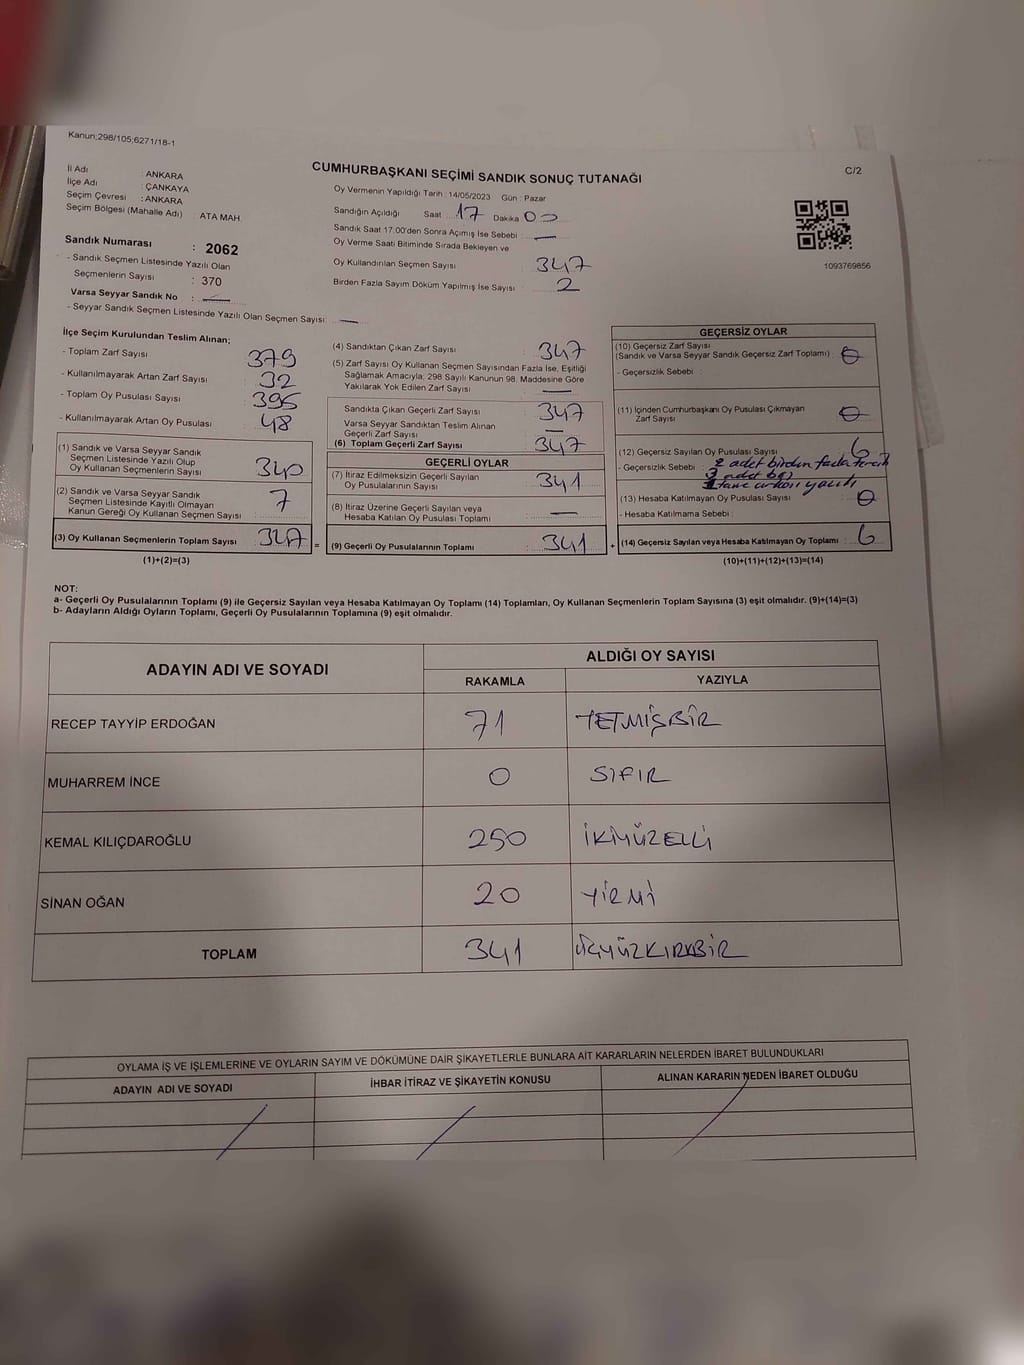 Kanun;298/105;6271/18-1
C/2
CUMHURBAŞKANI SEÇİMİ SANDIK SONUÇ TUTANAĞI
İl Adı : ANKARA
İlçe Adı : ÇANKAYA
Seçim Çevresi : ANKARA
Seçim Bölgesi (Mahalle Adı) : ATA MAH.
Sandık Numarası : 2062
- Sandık Seçmen Listesinde Yazılı Olan
Seçmenlerin Sayısı : 370
Varsa Seyyar Sandık No : —
- Seyyar Sandık Seçmen Listesinde Yazılı Olan Seçmen Sayısı: —
Oy Vermenin Yapıldığı Tarih : 14/05/2023 Gün : Pazar
Sandığın Açıldığı Saat : 17 Dakika 00
Sandık Saat 17:00'den Sonra Açımış İse Sebebi : —
Oy Verme Saati Bitiminde Sırada Bekleyen ve
Oy Kullandırılan Seçmen Sayısı : 347
Birden Fazla Sayım Döküm Yapılmış İse Sayısı : 2
1093769856
İlçe Seçim Kurulundan Teslim Alınan;
- Toplam Zarf Sayısı : 379
- Kullanılmayarak Artan Zarf Sayısı : 32
- Toplam Oy Pusulası Sayısı : 395
- Kullanılmayarak Artan Oy Pusulası : 48
(1) Sandık ve Varsa Seyyar Sandık
Seçmen Listesinde Yazılı Olup
Oy Kullanan Seçmenlerin Sayısı : 340
(2) Sandık ve Varsa Seyyar Sandık
Seçmen Listesinde Kayıtlı Olmayan
Kanun Gereği Oy Kullanan Seçmen Sayısı : 7
(3) Oy Kullanan Seçmenlerin Toplam Sayısı : 347 =
(1)+(2)=(3)
(4) Sandıktan Çıkan Zarf Sayısı : 347
(5) Zarf Sayısı Oy Kullanan Seçmen Sayısından Fazla İse, Eşitliği
Sağlamak Amacıyla; 298 Sayılı Kanunun 98. Maddesine Göre
Yakılarak Yok Edilen Zarf Sayısı : —
Sandıkta Çıkan Geçerli Zarf Sayısı : 347
Varsa Seyyar Sandıktan Teslim Alınan
Geçerli Zarf Sayısı : —
(6) Toplam Geçerli Zarf Sayısı : 347
GEÇERLİ OYLAR
(7) İtiraz Edilmeksizin Geçerli Sayılan
Oy Pusulalarının Sayısı : 341
(8) İtiraz Üzerine Geçerli Sayılan veya
Hesaba Katılan Oy Pusulası Toplamı : —
(9) Geçerli Oy Pusulalarının Toplamı : 341 +
GEÇERSİZ OYLAR
(10) Geçersiz Zarf Sayısı
(Sandık ve Varsa Seyyar Sandık Geçersiz Zarf Toplamı) : 0
- Geçersizlik Sebebi :
(11) İçinden Cumhurbaşkanı Oy Pusulası Çıkmayan
Zarf Sayısı : 0
(12) Geçersiz Sayılan Oy Pusulası Sayısı : 6
- Geçersizlik Sebebi : 2 adet birden fazla tercih
3 adet boş
1 tane arkası yazılı
(13) Hesaba Katılmayan Oy Pusulası Sayısı : 0
- Hesaba Katılmama Sebebi :
(14) Geçersiz Sayılan veya Hesaba Katılmayan Oy Toplamı : 6
(10)+(11)+(12)+(13)=(14)
NOT:
a- Geçerli Oy Pusulalarının Toplamı (9) ile Geçersiz Sayılan veya Hesaba Katılmayan Oy Toplamı (14) Toplamları, Oy Kullanan Seçmenlerin Toplam Sayısına (3) eşit olmalıdır. (9)+(14)=(3)
b- Adayların Aldığı Oyların Toplamı, Geçerli Oy Pusulalarının Toplamına (9) eşit olmalıdır.
ADAYIN ADI VE SOYADI ALDIĞI OY SAYISI
RAKAMLA YAZIYLA
RECEP TAYYİP ERDOĞAN 71 YETMİŞBİR
MUHARREM İNCE 0 SIFIR
KEMAL KILIÇDAROĞLU 250 İKİYÜZELLİ
SİNAN OĞAN 20 YİRMİ
TOPLAM 341 ÜÇYÜZKIRKBİR
OYLAMA İŞ VE İŞLEMLERİNE VE OYLARIN SAYIM VE DÖKÜMÜNE DAİR ŞİKAYETLERLE BUNLARA AİT KARARLARIN NELERDEN İBARET BULUNDUKLARI
ADAYIN ADI VE SOYADI İHBAR İTİRAZ VE ŞİKAYETİN KONUSU ALINAN KARARIN NEDEN İBARET OLDUĞU